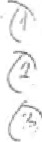 (1)
(2)
(3)